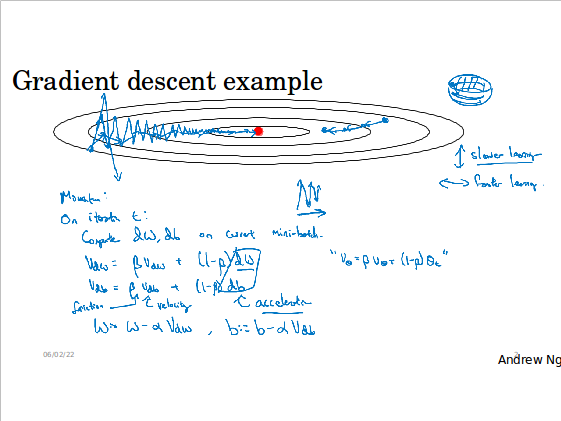 Gradient descent example
↕ slower learning
↔ faster learning.
Momentum:
On iteration t:
Compute dW, db on current mini-batch.
Vdw = β Vdw + (1-β) dW
"Vθ = β Vθ + (1-β) θt"
Vdb = β Vdb + (1-β) db
friction velocity acceleration
W := W - α Vdw , b := b - α Vdb
06/02/22
Andrew Ng